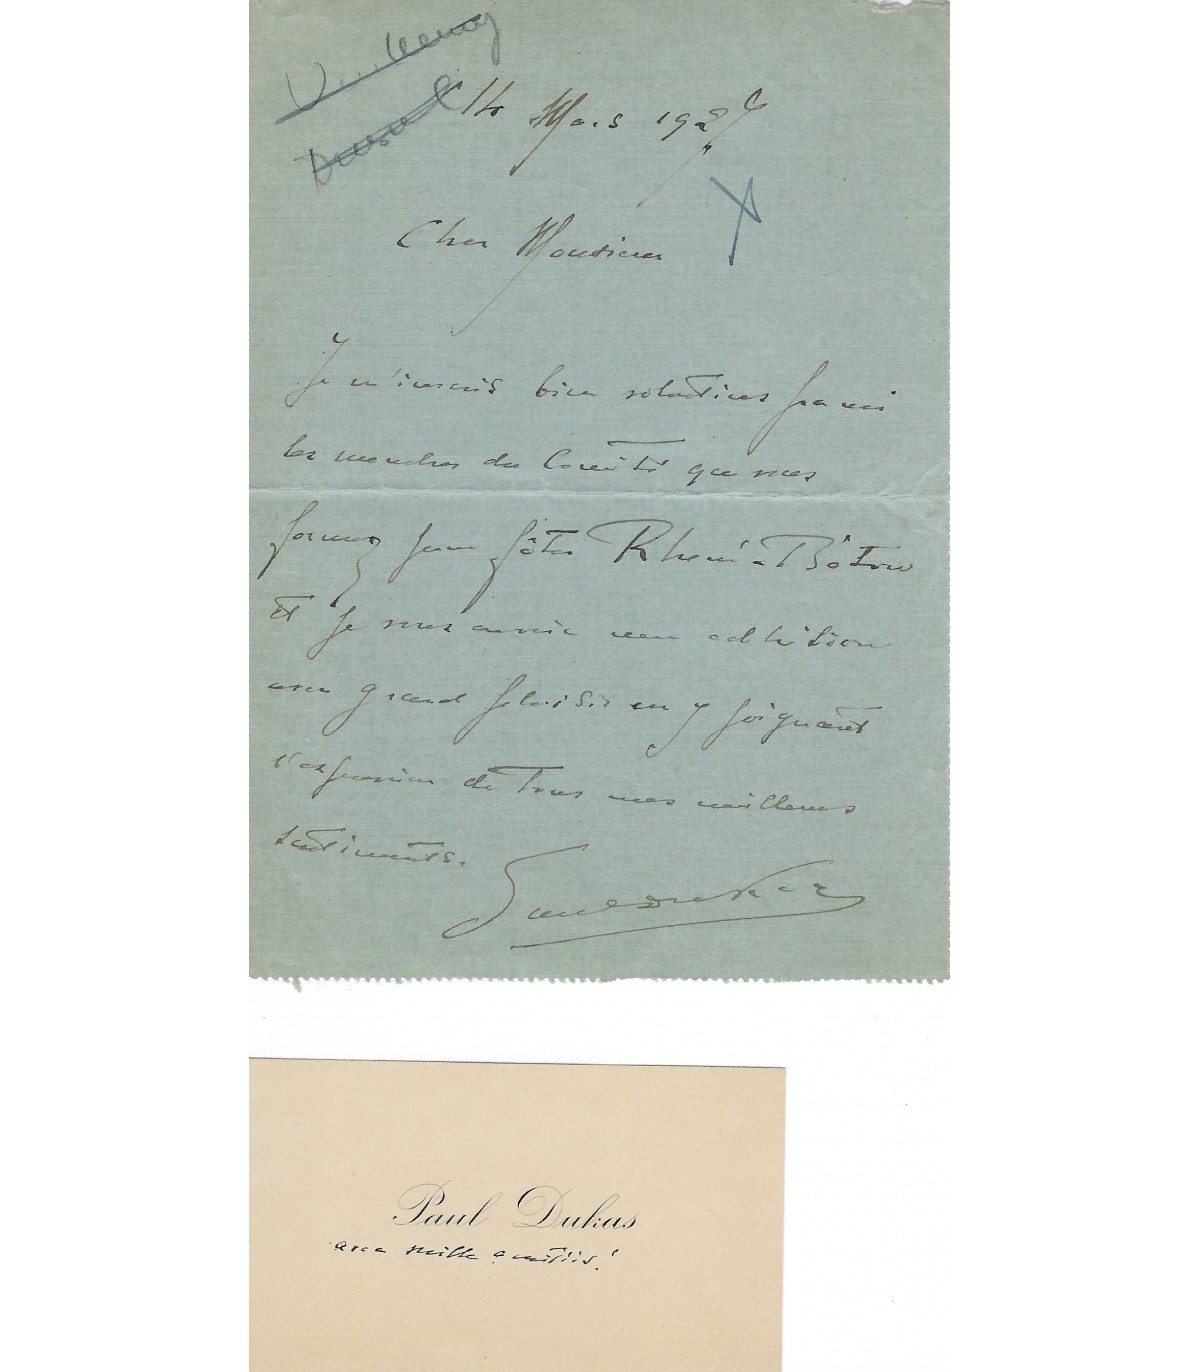 14 Mars 1927
Cher Monsieur
Je m'inscris bien volontiers parmi
les membres du Comité que vous
formez pour fêter Rhené-Bâton
et je vous envoie mon adhésion
avec grand plaisir en y joignant
l'expression de tous mes meilleurs
sentiments.
Paul Dukas
Paul Dukas
avec mille amitiés!